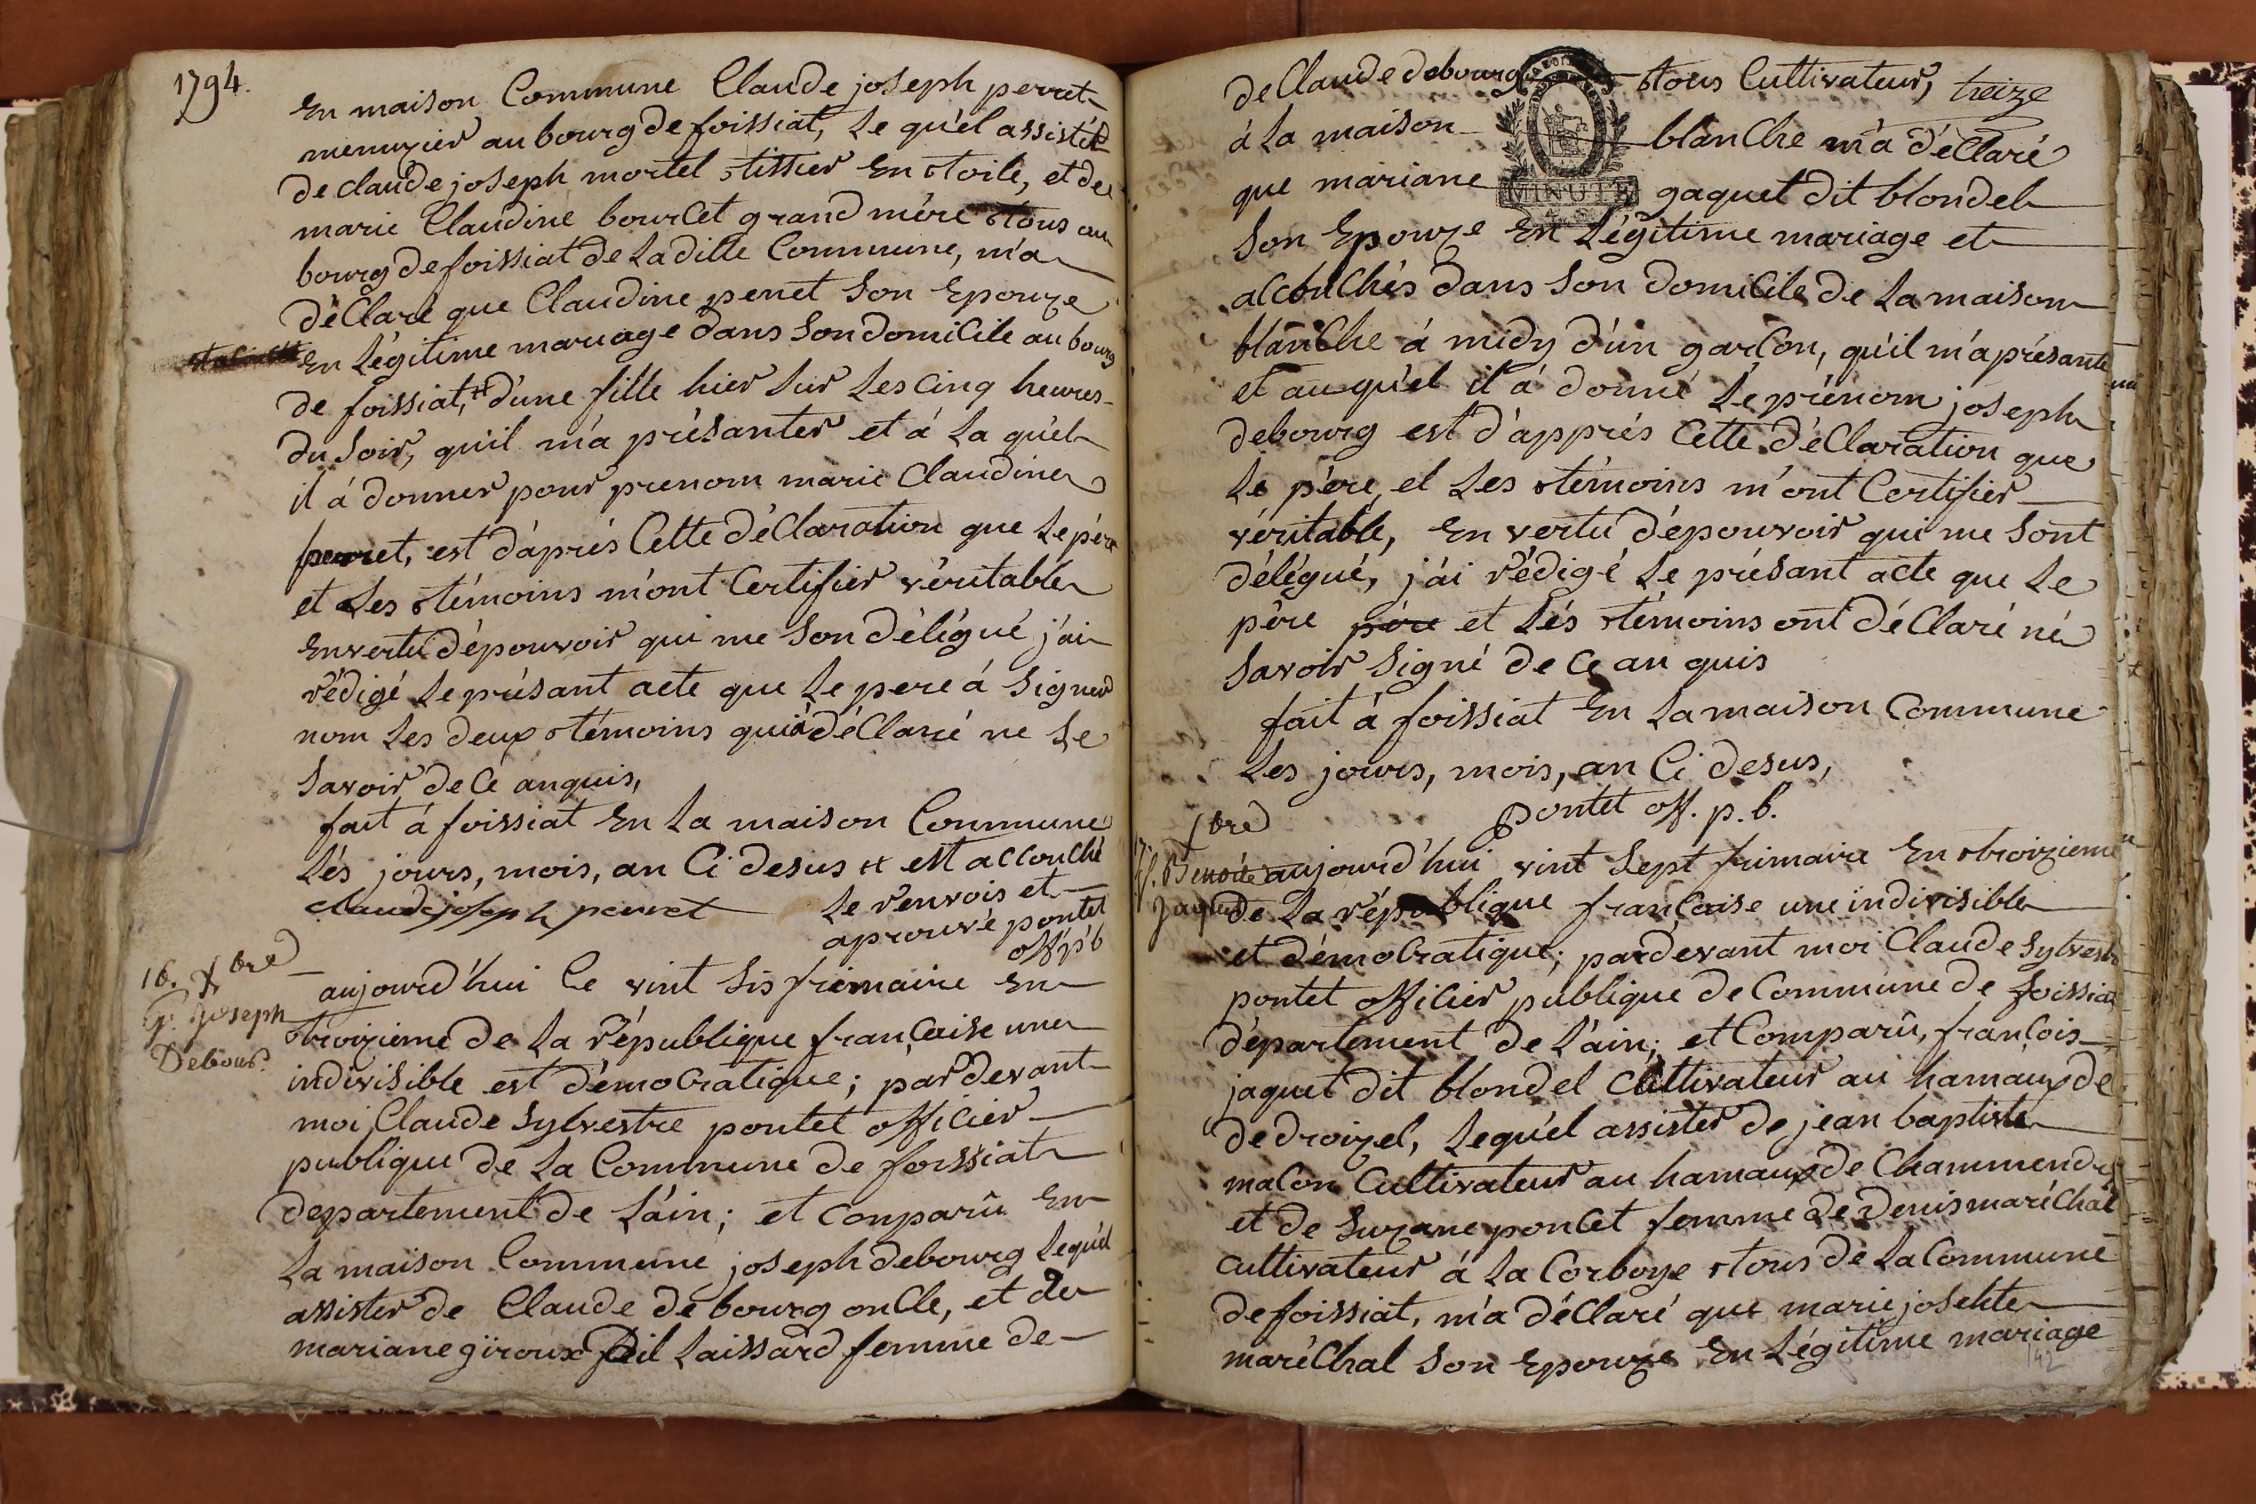 1794.
En maison Commune Claude joseph perret
menuzier au bourg de foissiat, Le qu'el assistér
de claude joseph mortel tissier En toile, et de
marie Claudine bourcet grand mére tous au
bourg de foissiat de La dille Commune, m'a
déClaré que Claudine penet Son Epouze
En Légitime mariage dans Son domicile au bourg
de foissiat, # d'une fille hier Sur Les cinq heures
du Soir, quil m'a présanter et á La quel
il á donner pour prenom marie Claudine
perret, est d'aprés Cette déClaration que Le pére
et Les témoins m'ont Certifier véritable
En vertu dépouvoir qui me Son délégué j'ai
rédigé Le présant acte que Le pere á Signer
nom Les deux témoins qui á déClaré ne Le
Savoir de Ce anquis,
fait á foissiat En La maison Commune
Lés jours, mois, an Ci desus # est accouché
claude joseph perret
Le renvois et
aprouvé pontet
off. p. b
16. xbre
G. Joseph
Debour.
aujourd'hui Ce vint Sis frimaire En
troizieme de La république francaise une
indivisible est démocratique; pardevant
moi Claude Sylvestre pontet officier
publique de La Commune de foissiat
departement de L'áin; et Conparû En
La maison Commune joseph debourg Lequél
assister de Claude debourg oncle, et de
mariane giroux feil Laissard femme de
de Claude debourg tous Cultivateur, treize
á La maison blanche m'a déClaré
MINUTE
que mariane gaquet dit blondel
Son Epouze En Légitime mariage et
accouchés dans Son domicile de La maison
blanche á midy d'un garcon, qu'il m'a présante
et auqu'el il á donné Le prénom joseph
debourg est d'apprés Cette déClaration que
Le pére, et Les témoins m'ont Certifier
véritable, En vertu dépouvoir qui me Sont
délégué, j'ai rédigé Le présant acte que Le
pére pére et Lés témoins ont déClaré né
Savoir Signé de Ce an quis
fait á foissiat En La maison Commune
Les jours, mois, an Ci desus,
pontet off. p. b.
17. xbre
f. Benoite
Jaquet
aujourd'hui vint Sept frimaire En troizieme
de La république francaise une indivisible
et démocratique; pardevant moi Claude Sylvestre
pontet officier publique de Commune de foissiat
département de L'ain; et Comparû, francois
jaquet dit blondel Cultivateur au hamaux de
de droizel, Lequ'el assister de jean baptiste
macon Cultivateur au hamaux de Chammendes
et de Suzane poncet femme de Denis maréchal
cultivateur á La Corboye tous de La Commune
de foissiat, m'a déClaré que marie josehte
maréChal Son Epouze En Légitime mariage
142